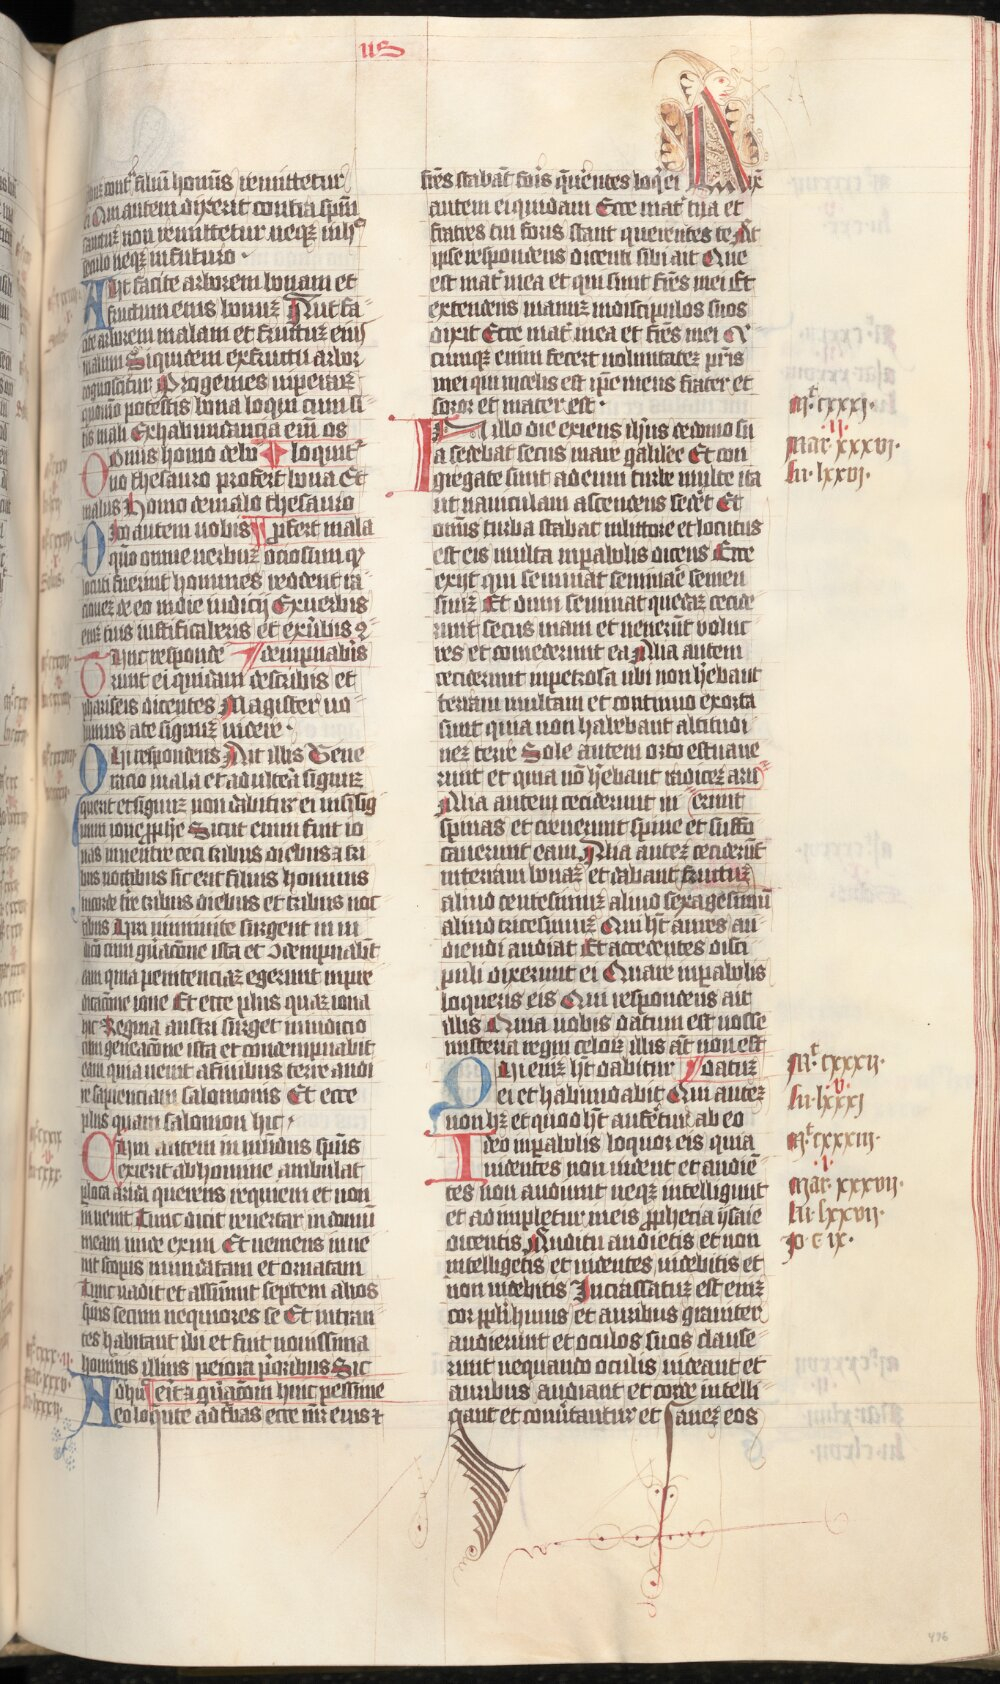 us
cont̾ filiū hominis remittetur
ei Qui autem dixerit contra spm̄
sanctuꝫ non remittetur neqꝫ in hͦ
seculo neqꝫ in futuro ·
Aut facite arborem bonam et
fructum eius bonuꝫ Aut fa
cite arborem malam et fructuꝫ eiꝰ
malum Siquidem ex fructu arbor
cognoscitur Progenies viperaꝝ
quomo potestis bona loqui cum si
tis mali Ex habundancia eni os
Bonus homo de bo loquit̾
no thesauro profert bona Et
malus Homo de malo thesauro
Dico autem uobis ꝓfert mala
qͦm omne uerbuꝫ ociosum qͩ
locuti fuerint homines reddent ra
cioneꝫ de eo in die iudicij Ex uerbis
eniꝫ tuis iustificaberis et ex ūbis ꝯ
Tunc responde dempnab̾is
runt ei quidam de scribis et
phariseis dicentes Magister uo
lumus a te signuꝫ videre ·
Qui respondens Ait illis Gene
racio mala et adultera signuꝫ
querit et signuꝫ non dabitur ei nisi sig
num ione ꝓphe Sicut enim fuit io
nas in uentre ceti tribus diebus ⁊ tri
bus noctibus sic erit filius hominis
in corde tre tribus diebus et tribus noc
tibus Viri niniuite surgent in iu
dicō cum gn̄acōne ista et 9dempnabūt
eam quia penitenciaꝫ egerunt in pre
dicacōne ione Et ecce plus quaꝫ iona
hic Regina austri surget in iudicio
cum gen̄eacōne ista et condempnabit
eam quia uenit a finibus terre audi
re sapienciam salomonis Et ecce
plus quam salomon hic ·
Cum autem in mūdus spūs
exierit ab homine ambulat
ꝑ loca arida querens requiem et non
inuenit Tunc dicit reuertar in domū
meam unde exiui Et ueniens inue
nit scopis mundatam et ornatam
Tunc uadit et assumit septem alios
spūs secum nequiores se Et intran
tes habitant ibi et fiunt nouissima
hominis illius peiora prioribus Sic
Adhuc erit ⁊ gn̄acōni huic pessime
eo loquente ad t̾bas ecce mr̄ eius ⁊
fr̄es stabāt foris querentes loqͥ ei Dixit
autem ei quidam Ecce mat̾ tua et
fratres tui foris stant querentes te At
ipse respondens dicenti sibi ait Que
est mat̾ mea et qui sunt fr̄es mei Et
extendens manuꝫ in discipulos suos
dixit Ecce mat̾ mea et fr̄es mei Q
cumqꝫ enim fecerit uoluntateꝫ pr̄is
mei qui in celis est ip̄e meus frater et
soror et mater est ·
In illo die exiens ihs̄us de domo su
a sedebat secus mare galilee Et con
gregate sunt ad eum turbe multe ita
ut nauiculam ascendens sed̾et Et
omīs turba stabat in littore et locutus
est eis multa in parabolis dicens Ecce
exijt qui seminat seminare semen
suuꝫ Et dum seminat quedaꝫ cecide
runt secus uiam et uenerūt volu
res et comederunt ea Alia autem
ceciderunt in petrosa ubi non hēbant
terram multam et continuo exorta
sunt quia non habebant altitudi
neꝫ terre Sole autem orto estuaue
runt et quia nō hēbant radiceꝫ aru
Alia autem ceciderunt in erunt
spinas et creuerunt spine et suffo
cauerunt eam Alia auteꝫ ceciderūt
in terram bonaꝫ et dabant fructuꝫ
aliud centesimuꝫ aliud sexagesimū
aliud tricesimuꝫ Qui hꝫt aures au
diendi audiat Et accedentes disci
puli dixerunt ei Quare in ꝑabolis
loqueris eis Qui respondens ait
illis Quia uobis datum est nosse
misteria regni celoꝝ illis at̄ non est
Qui eniꝫ hꝫt dabitur datuꝫ
ei et habundabit Qui auteꝫ
non hꝫ et quod hꝫt auferetur ab eo
Ideo in ꝑabolis loquor eis quia
uidentes non uident et audiē
tes non audiunt neqꝫ intelligunt
et ad impletur in eis ꝓphecia ysaie
dicentis Auditu audietis et non
intelligetis et uidentes uidebitis et
non uidebitis Incrassatuꝫ est eniꝫ
cor ppl̄i huius et auribus grauiter
audierunt et oculos suos clause
runt nequando oculis uideant et
auribus audiant et corde intelli
gant et conuertantur et saneꝫ eos
mͭ. cxxxi.
.ij.
mar. xxxvi.
lu. lxxvi.
mͭ. cxxxij.
.v.
lu. lxxxi
mͭ. cxxxiij.
.i.
mar. xxxvij.
lu. lxxvij.
Jo c ix.
496